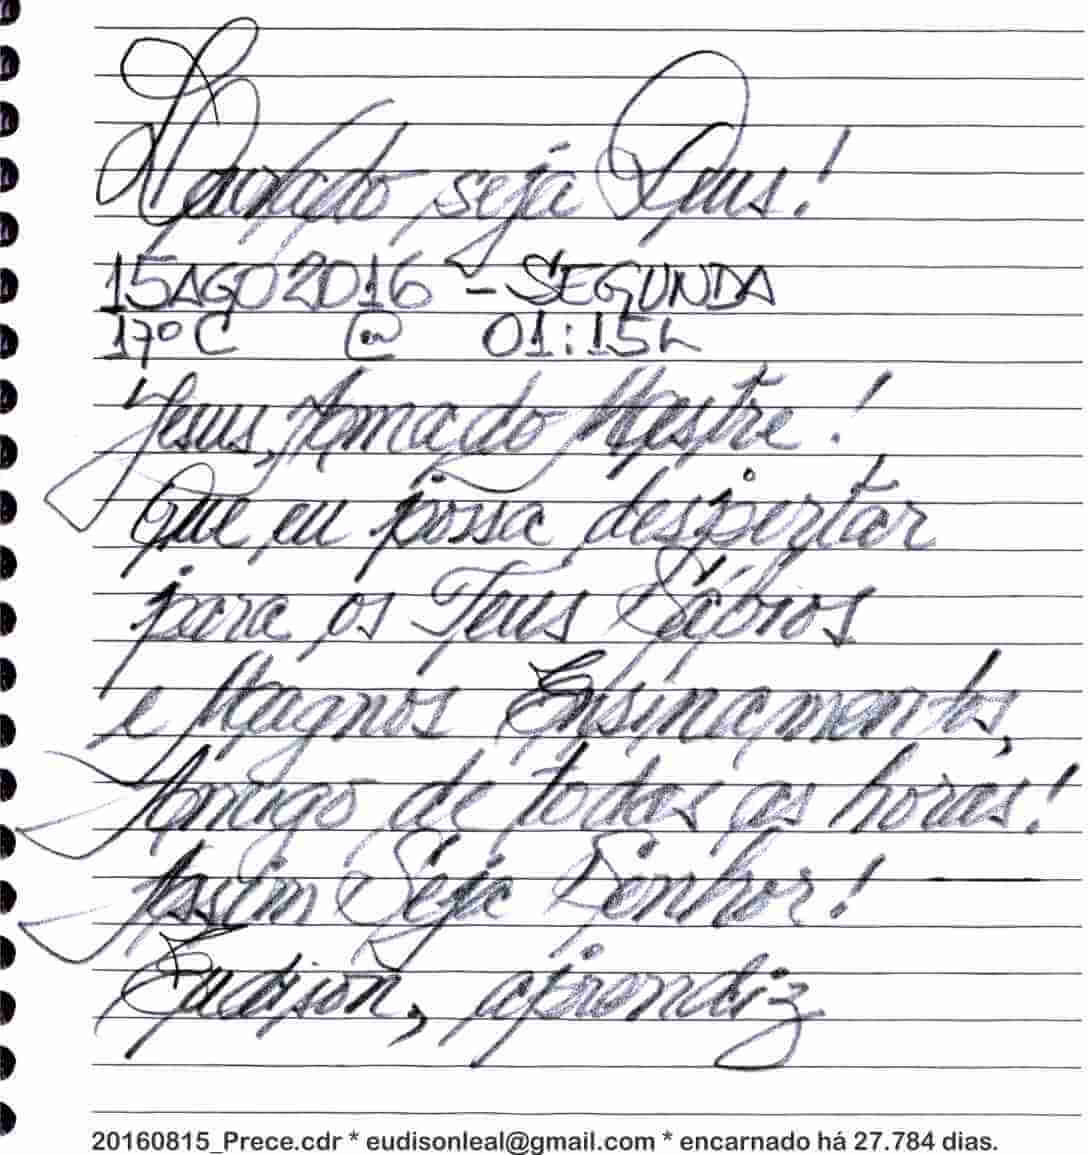 Louvado seja Deus!
15AGO2016 - SEGUNDA
17ºC @ 01:15h
Jesus, Amado Mestre!
Que eu possa despertar
para os Teus Sábios
e Magnos Ensinamentos,
Amigo de todas as horas!
Assim Seja Senhor!
Eudison, aprendiz
20160815_Prece.cdr * eudisonleal@gmail.com * encarnado há 27.784 dias.